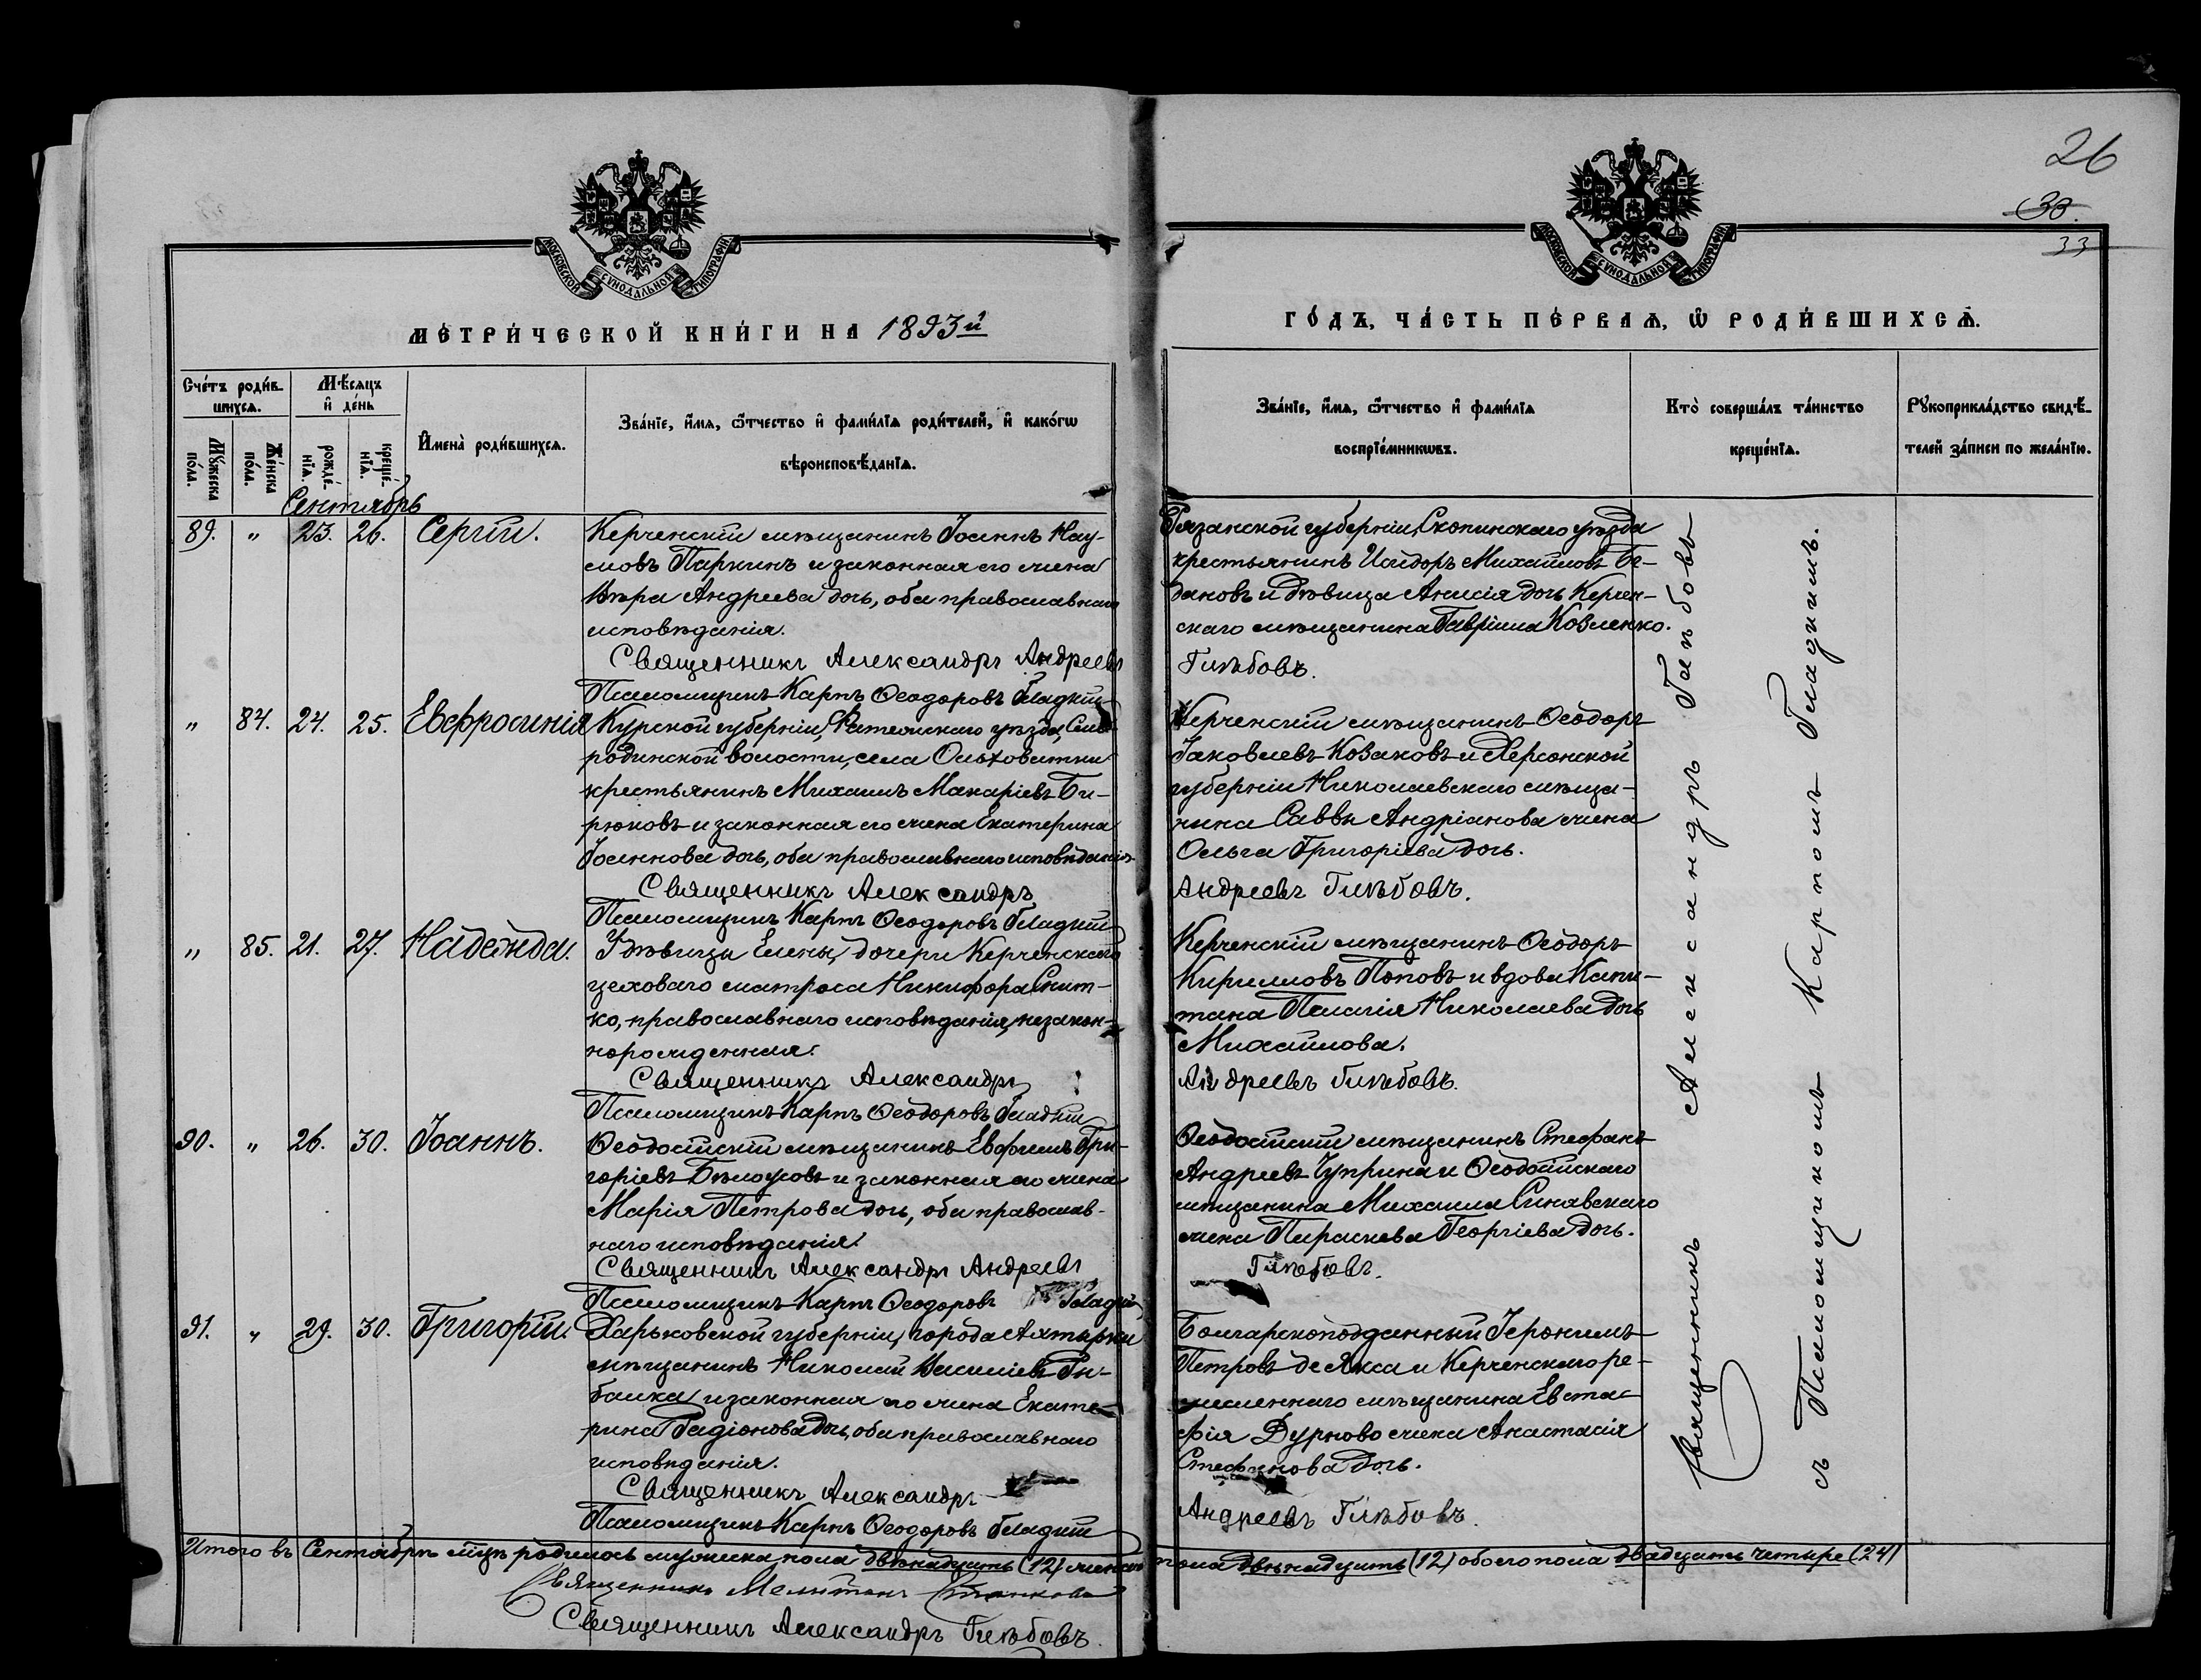 26
30.
33
МОСКОВСКОЙ СѴНОДАЛЬНОЙ ТИПОГРАФІИ
МОСКОВСКОЙ СѴНОДАЛЬНОЙ ТИПОГРАФІИ
МЕТРИ́ЧЕСКОЙ КНИ́ГИ НА 1893й
ГО́ДЪ, ЧА́СТЬ ПЕ́РВАѦ, Ѽ РОДИ́ВШИХСѦ.
Счетъ роди́в-
шихсѧ.
Мѣ́сѧцъ
и҆ де́нь
Мꙋ́жеска
по́ла.
Же́нска
по́ла.
рожде́-
нїѧ.
креще́-
нїѧ.
И҆мена̀ роди́вшихсѧ.
Зва́нїе, и҆́мѧ, ѻ҆́тчество и҆ фами́лїѧ роди́телей, и҆ како́гѡ
вѣроисповѣ́данїѧ.
Зва́нїе, и҆́мѧ, ѻ҆́тчество и҆ фами́лїѧ
воспрїе́мникѡвъ.
Кто̀ соверша́лъ та́инство
креще́нїѧ.
Рꙋкоприкла́дство свидѣ́-
телей за́писи по жела́нїю.
Сентябрь
89. " 23. 26. Сергій.
Керченскій мѣщанинъ Іоаннъ Нау-
мовъ Паркинъ и законная его жена
Вѣра Андреева дочь, оба православнаго
исповѣданія.
Священникъ Александръ Андреевъ
Псаломщикъ Карпъ Ѳеодоровъ Гладкій
Рязанской губерніи, Скопинскаго уѣзда
крестьянинъ Исидоръ Михайловъ Бе-
дановъ и дѣвица Анисія дочь Керчен-
скаго мѣщанина Гавріила Козленко.
Глѣбовъ.
" 84. 24. 25. Евфросинія
Курской губерніи, Фатежскаго уѣзда, Смо-
родинской волости, села Ольховатки
крестьянинъ Михаилъ Макаріевъ Би-
рюковъ и законная его жена Екатерина
Іоаннова дочь, оба православнаго исповѣданія.
Священникъ Александръ
Псаломщикъ Карпъ Ѳеодоровъ Гладкій
Керченскій мѣщанинъ Ѳеодоръ
Іаковлевъ Козаковъ и Херсонской
губерніи Николаевскаго мѣща-
нина Саввы Андріанова жена
Ольга Григоріева дочь.
Андреевъ Глѣбовъ.
" 85. 21. 27. Надежда.
У дѣвицы Елены, дочери Керченскаго
цеховаго матроса Никифора Снит-
ко, православнаго исповѣданія, незакон-
норожденная.
Священникъ Александръ
Псаломщикъ Карпъ Ѳеодоровъ Гладкій
Керченскій мѣщанинъ Ѳеодоръ
Кирилловъ Поповъ и вдова Капи-
тана Пелагія Николаева дочь
Михайлова.
Андреевъ Глѣбовъ.
90. " 26. 30. Іоаннъ.
Ѳеодосійскій мѣщанинъ Евфимъ Гри-
горіевъ Бѣлоусовъ и законная его жена
Марія Петрова дочь, оба православ-
наго исповѣданія.
Священникъ Александръ Андреевъ
Псаломщикъ Карпъ Ѳеодоровъ Гладкій
Ѳеодосійскій мѣщанинъ Стефанъ
Андреевъ Чуприна и Ѳеодосійскаго
мѣщанина Михаила Синявскаго
жена Параскева Георгіева дочь.
Глѣбовъ.
91. " 29. 30. Григорій.
Харьковской губерніи, города Ахтырки
мѣщанинъ Николай Василіевъ Ры-
балка и законная его жена Екате-
рина Радіонова дочь, оба православнаго
исповѣданія.
Священникъ Александръ
Псаломщикъ Карпъ Ѳеодоровъ Гладкій
Болгарскоподданный Іеронимъ
Петровъ де Якса и Керченскаго ре-
месленнаго мѣщанина Евста-
фія Дурново жена Анастасія
Стефанова дочь.
Андреевъ Глѣбовъ.
Священникъ Александръ Глѣбовъ
съ Псаломщикомъ Карпомъ Гладкимъ.
Итого въ Сентябрѣ мцѣ родилось мужска пола двѣнадцать (12) женска пола двѣнадцать (12) обоего пола двадцать четыре (24)
Священникъ Мелитонъ Станковъ
Священникъ Александръ Глѣбовъ.